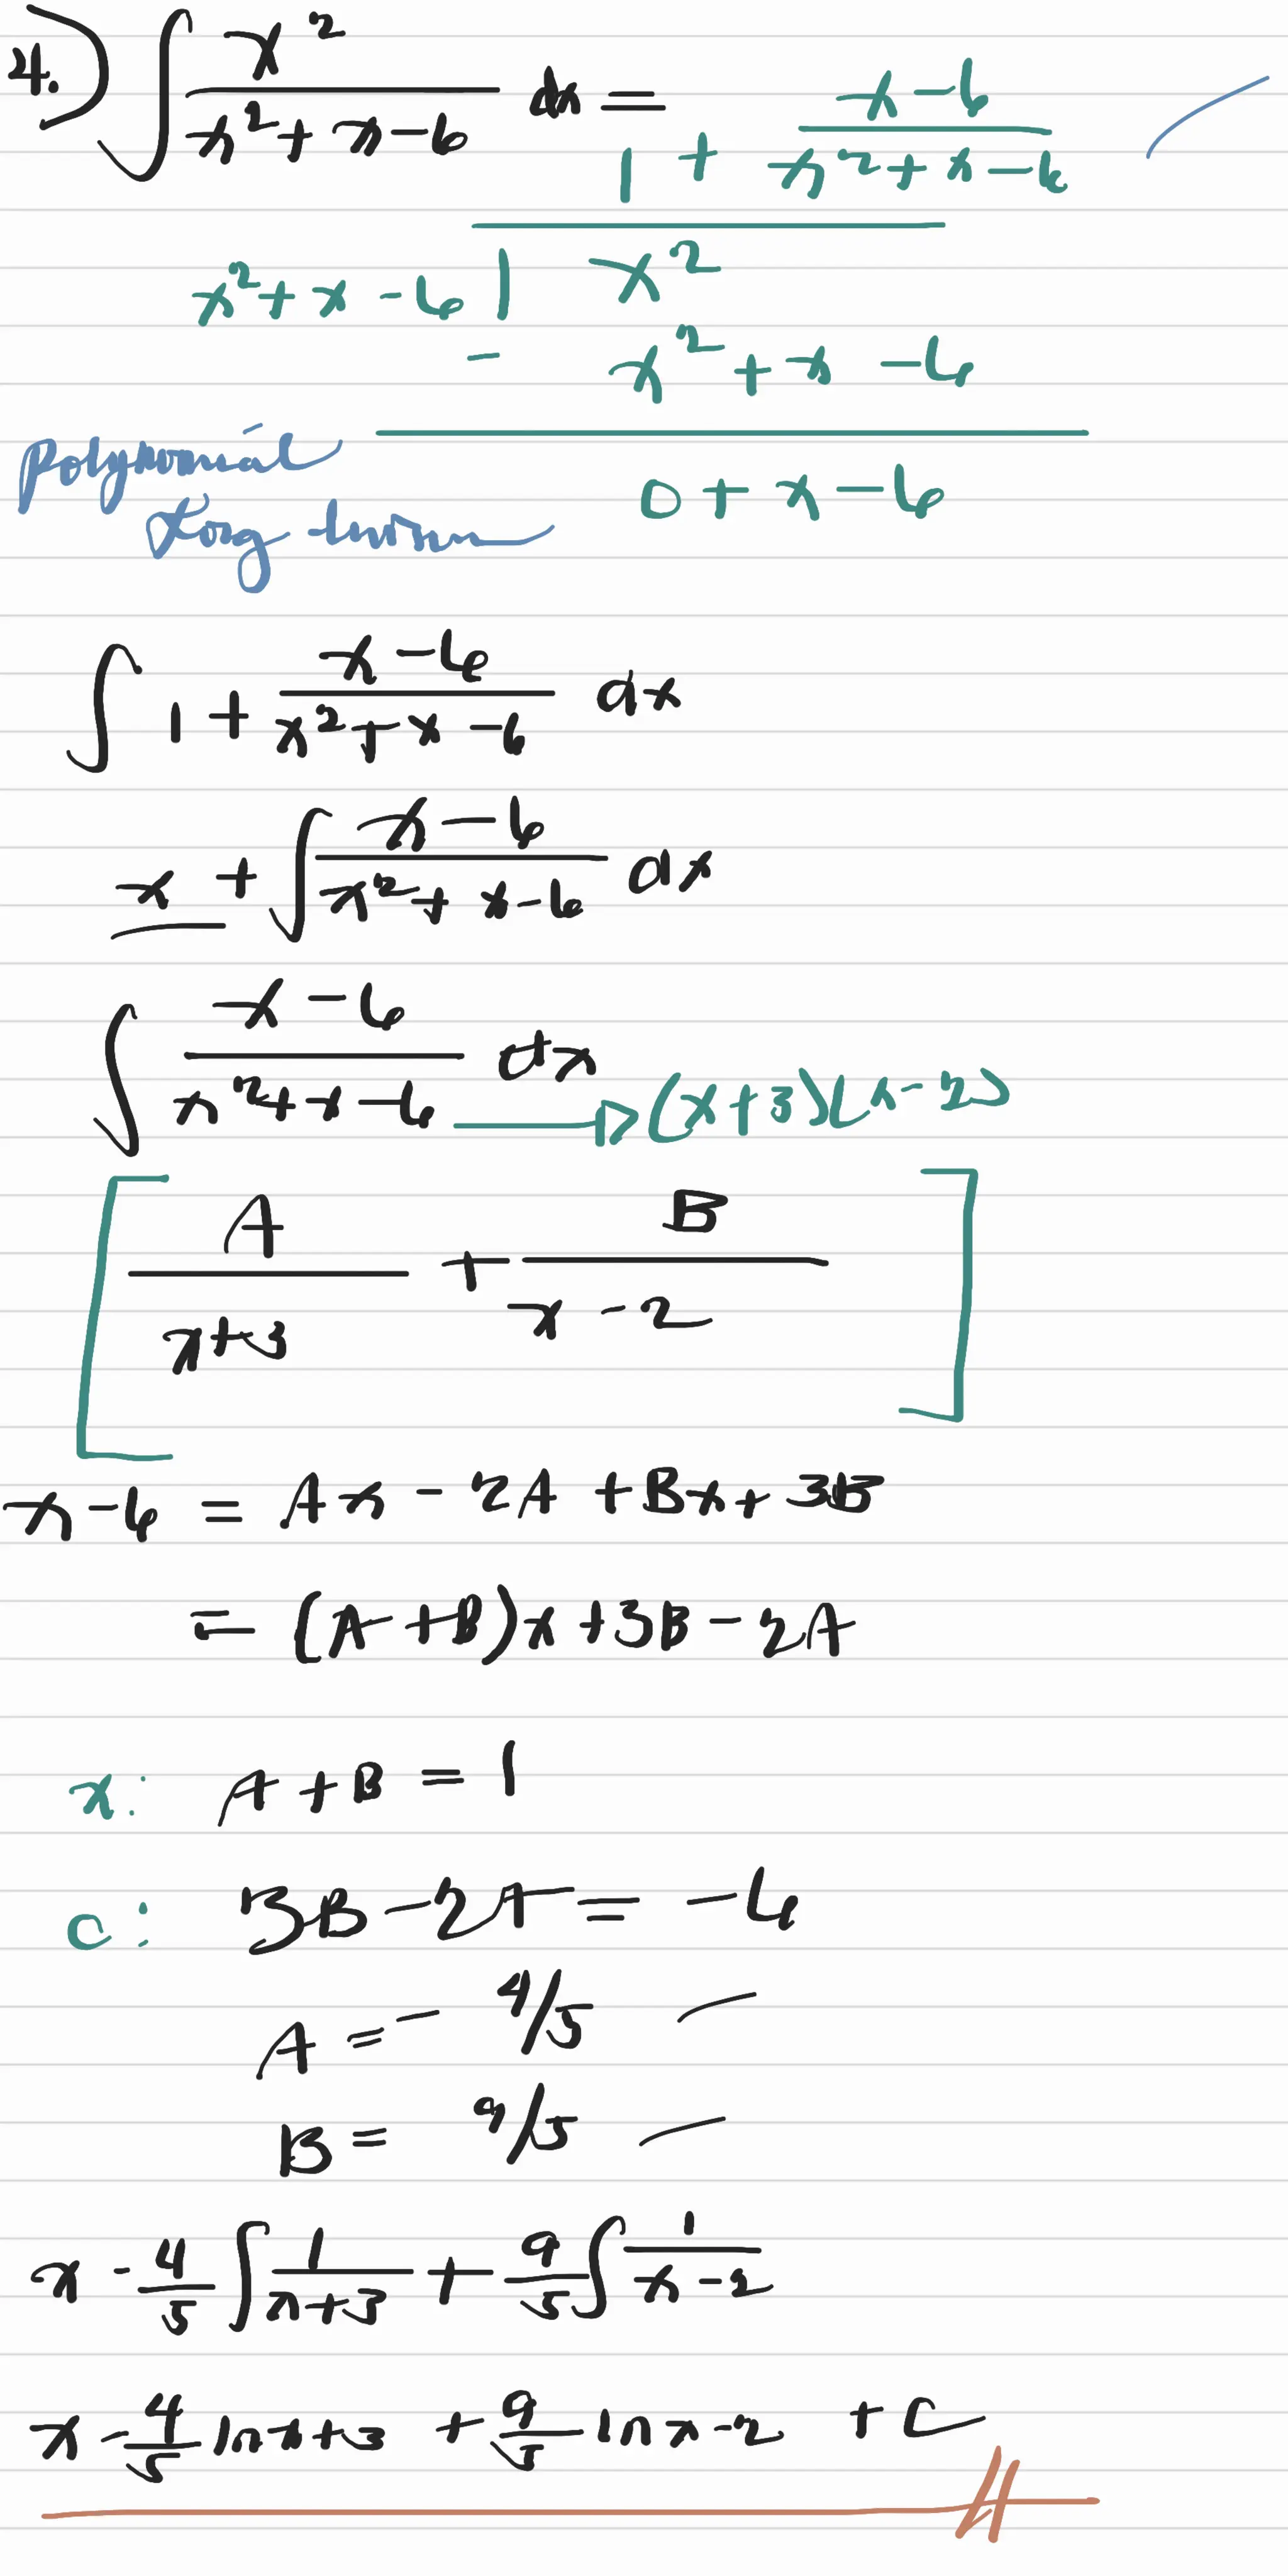 4.) ∫ x²/(x² + x - 6) dx = 1 + (x - 6)/(x² + x - 6)
x² + x - 6 | x²
- x² + x - 6
0 + x - 6
Polynomial
Long
∫ 1 + (x - 6)/(x² + x - 6) dx
x + ∫ (x - 6)/(x² + x - 6) dx
∫ (x - 6)/(x² + x - 6) dx → (x + 3)(x - 2)
[ A/(x + 3) + B/(x - 2) ]
x - 6 = Ax - 2A + Bx + 3B
= (A + B)x + 3B - 2A
x: A + B = 1
c: 3B - 2A = -6
A = - 4/5
B = 9/5
x - 4/5 ∫ 1/(x + 3) + 9/5 ∫ 1/(x - 2)
x - 4/5 ln x + 3 + 9/5 ln x - 2 + C